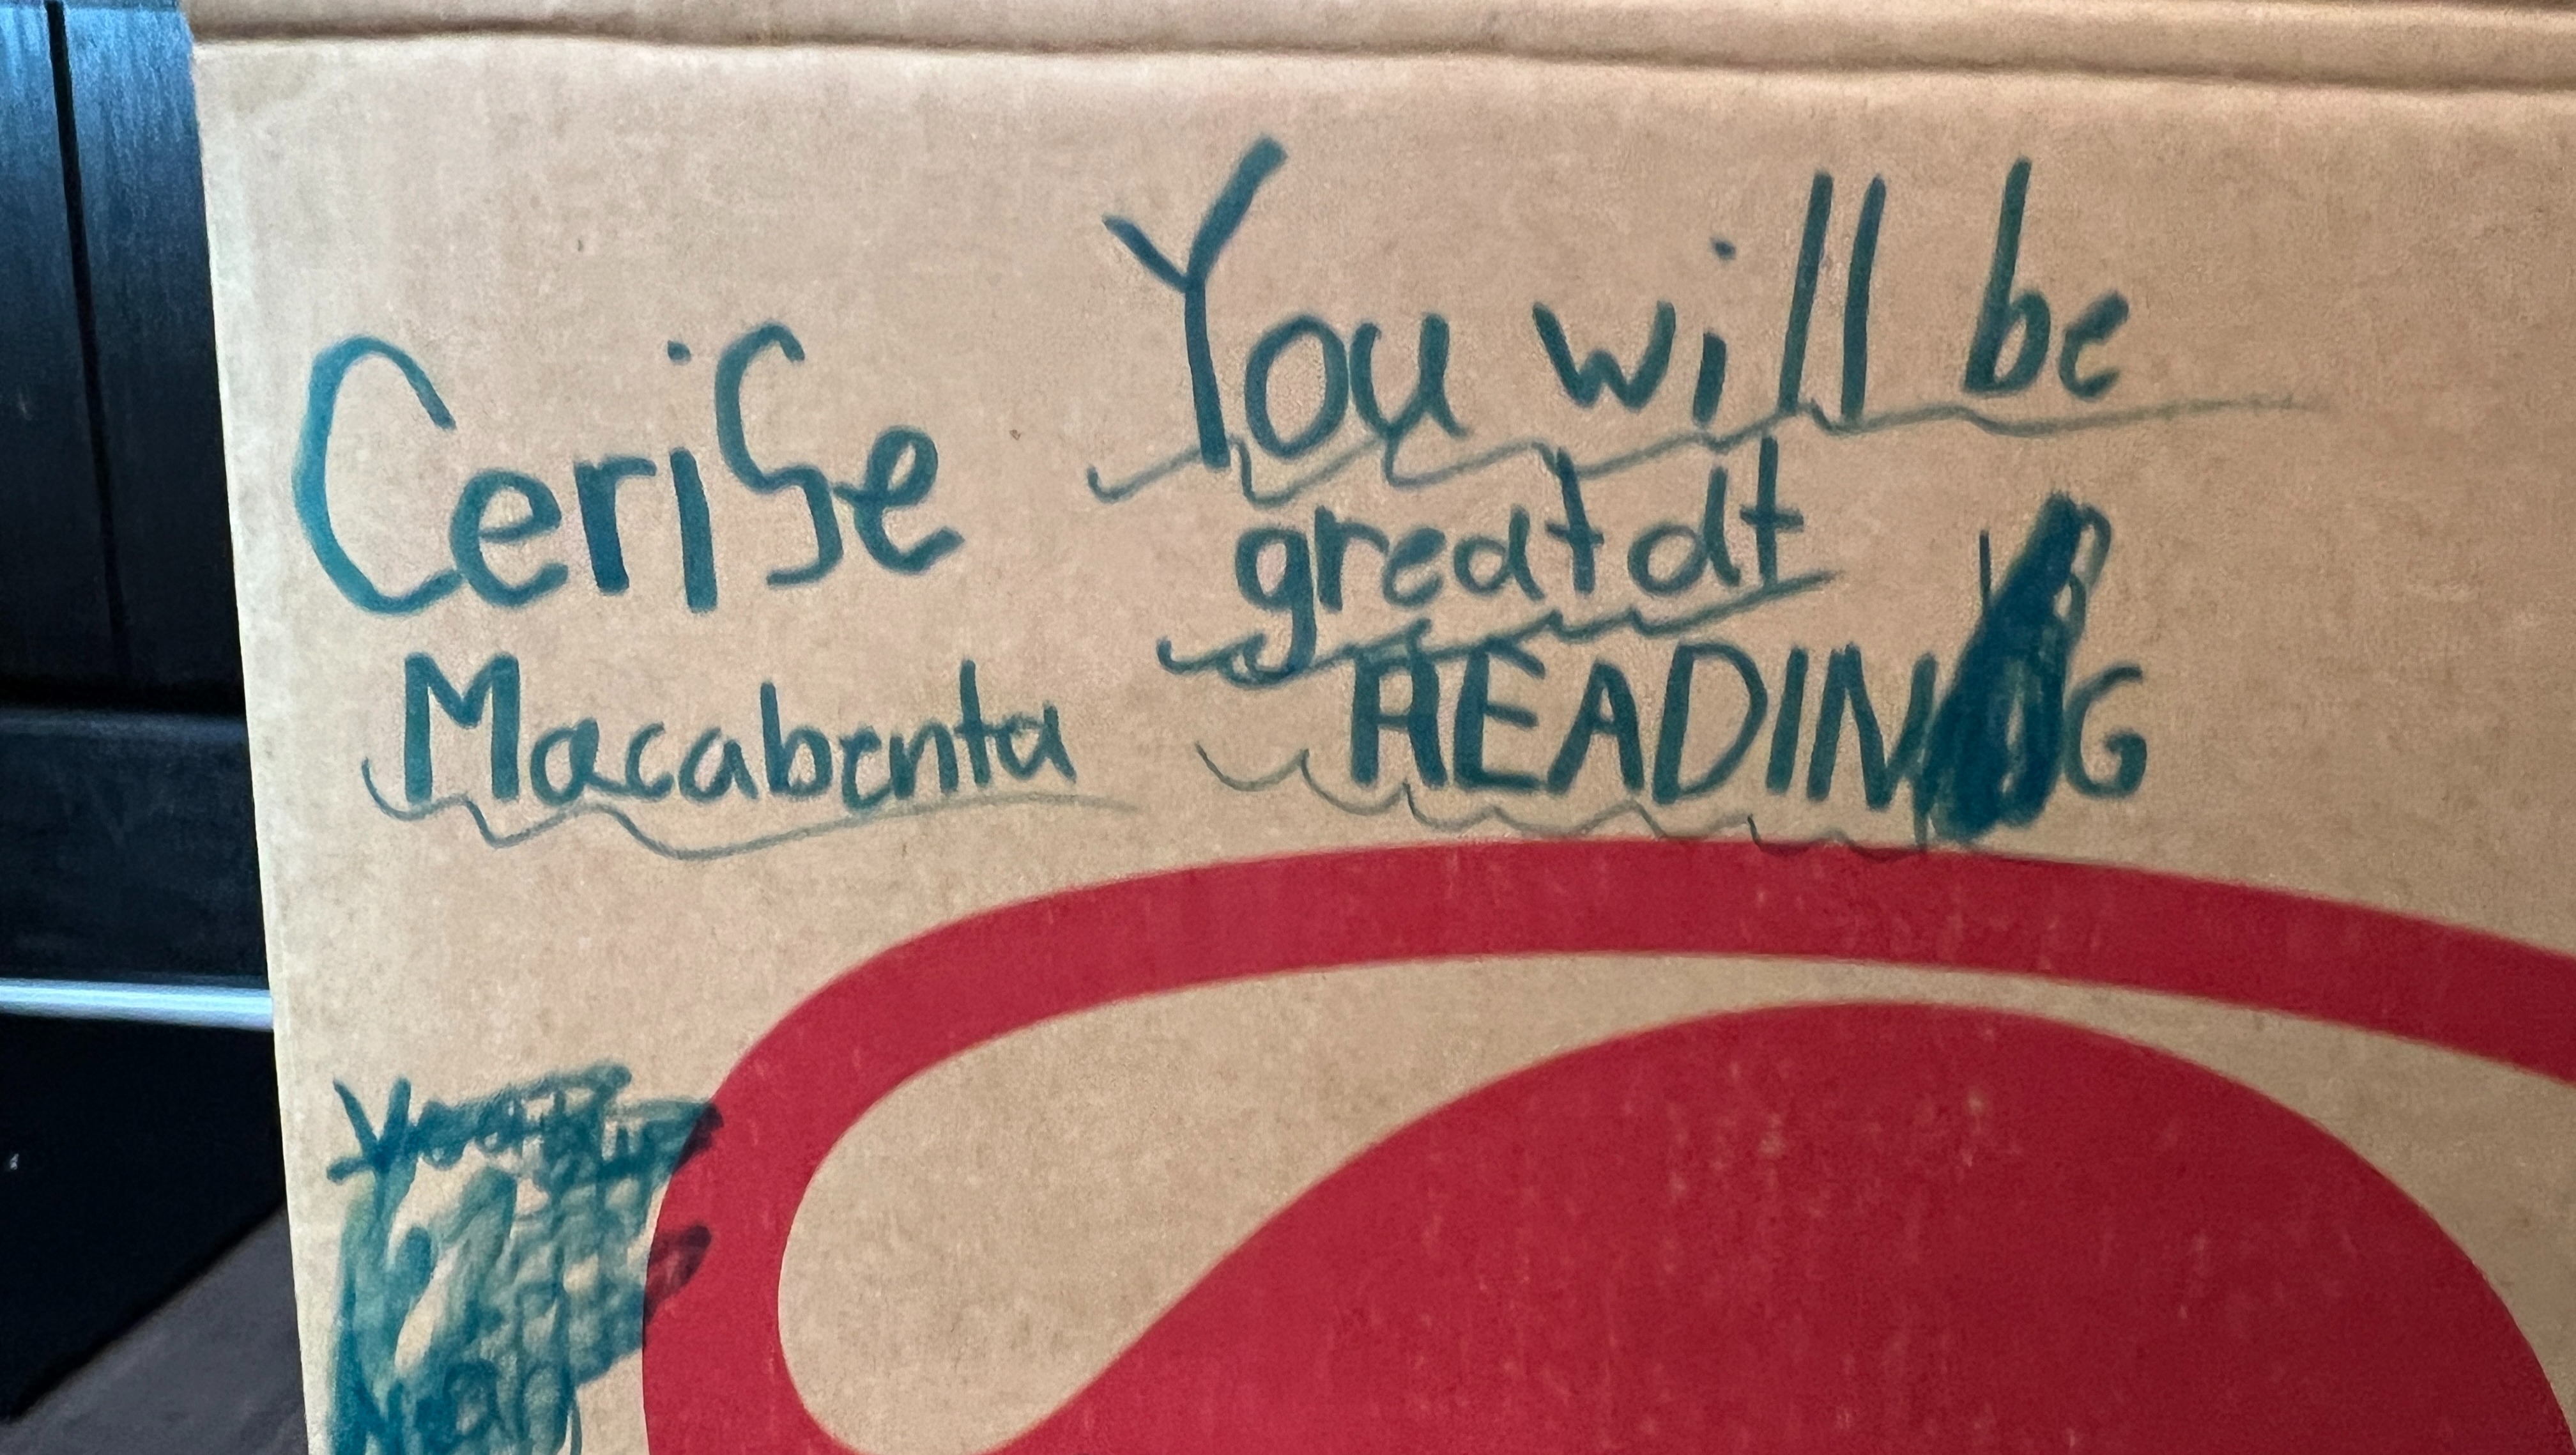 Cerise
Macabenta
You will be
great at
READING